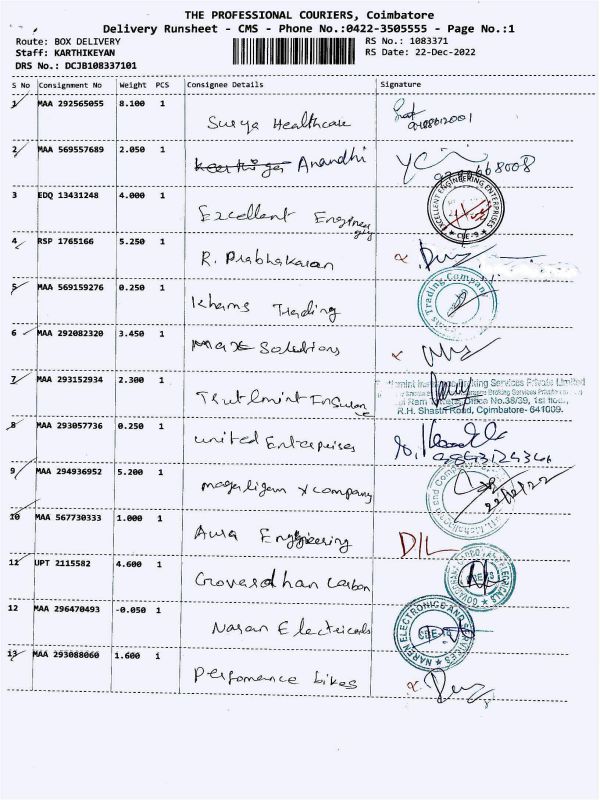 THE PROFESSIONAL COURIERS, Coimbatore
Delivery Runsheet - CMS - Phone No.:0422-3505555 - Page No.:1
Route: BOX DELIVERY
Staff: KARTHIKEYAN
DRS No.: DCJB108337101
RS No.: 1083371
RS Date: 22-Dec-2022
S No Consignment No Weight PCS Consignee Details Signature
1 MAA 292565055 8.100 1
Surya Healthcare
2 MAA 569557689 2.050 1
Anandhi
3 EDQ 13431248 4.000 1
Excellent
EXCELLENT ENGINEERING ENTERPRISES
CBE-9
4 RSP 1765166 5.250 1
R. Prabhakaran
5 MAA 569159276 0.250 1
Khams Trading
Trading Company
6 MAA 292082320 3.450 1
Max Solutions
7 MAA 293152934 2.300 1
Broking Services Private Limited
Office No.38/39, 1st floor,
R.H. Shastri Road, Coimbatore- 641009.
8 MAA 293057736 0.250 1
United Enterprises
9 MAA 294936952 5.200 1
company
22/12/22
10 MAA 567730333 1.000 1
Aura Engineering
DIL
11 UPT 2115582 4.600 1
Govardhan Carbon
12 MAA 296470493 -0.050 1
Naran Electricals
NAREN ELECTRONICS AND SERVICES
13 MAA 293088060 1.600 1
Perfomance bikes